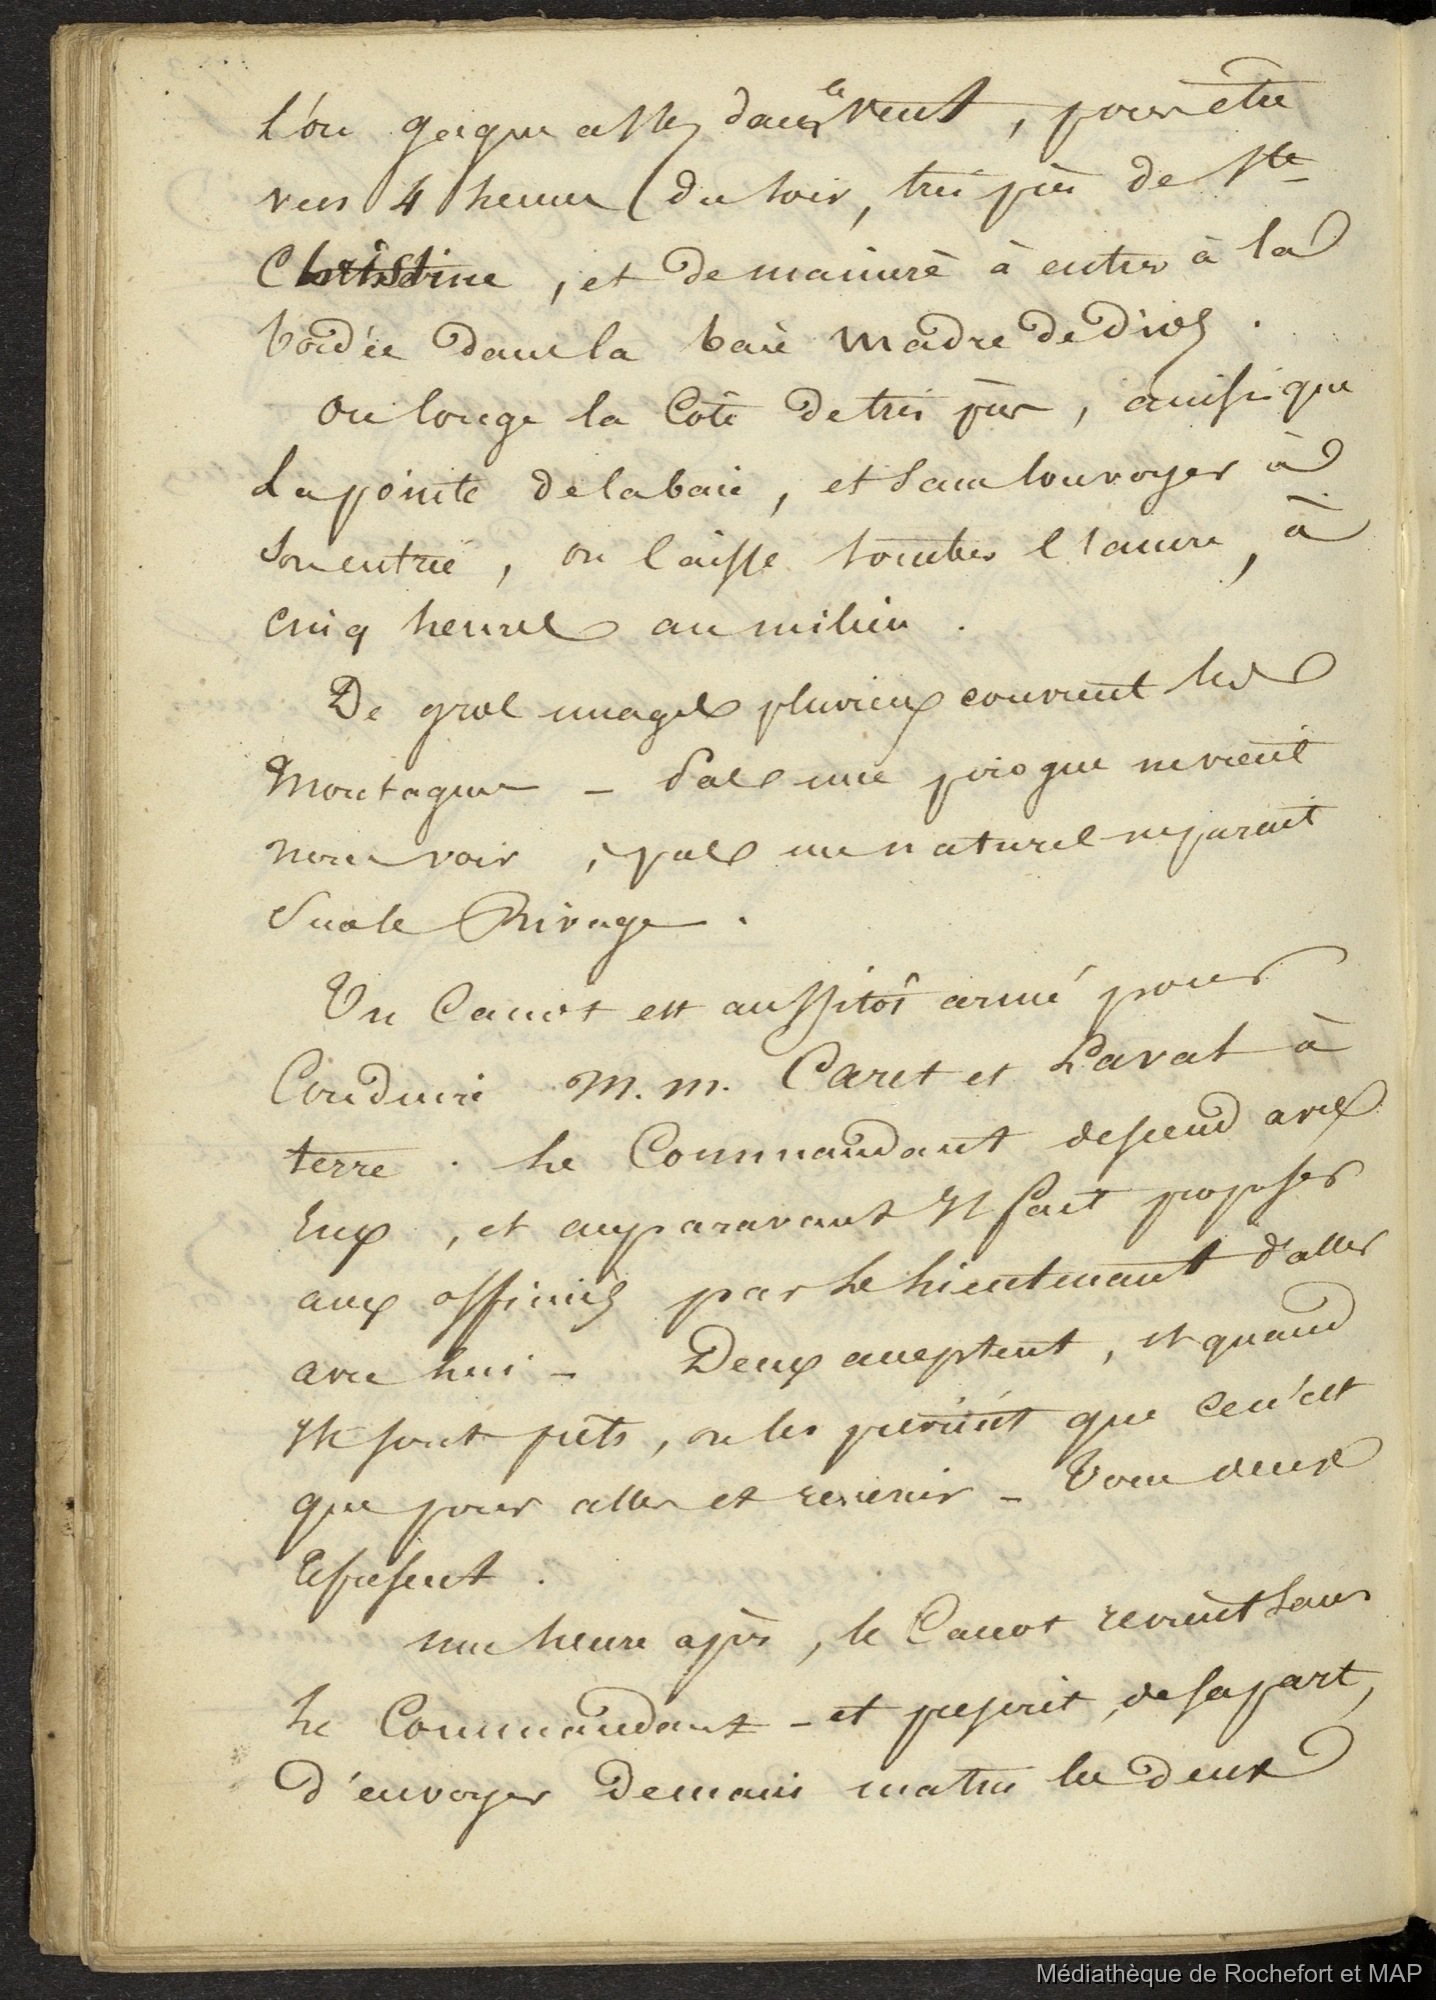 l'on gagne assez dans le vent, pour être
vers 4 heures du soir, très près de Ste
Christine, et de manière à entrer à la
bordée dans la baie Madre de Dios.
On longe la Côte de très près, ainsi que
la pointe de la baie, et sans louvoyer à
son entrée, on laisse tomber l'ancre, à
cinq heures au milieu.
De gros nuages pluvieux couvrent les
Montagnes - Pas une pirogue ne vient
nous voir, pas un naturel ne parait
sur le Rivage.
Un Canot est aussitôt armé pour
Conduire M.M. Caret et Laval à
terre. Le Commandant descend avec
eux, et auparavant Il fait proposer
aux officiers par le Lieutenant d'aller
avec lui - Deux acceptent, et quand
Ils sont prêts, on les prévient que ce n'est
que pour aller et revenir - Tous deux
Refusent.
une heure après, le Canot revient sans
le Commandant - et prescrit, de sa part,
d'envoyer Demain matin les deux
Médiathèque de Rochefort et MAP